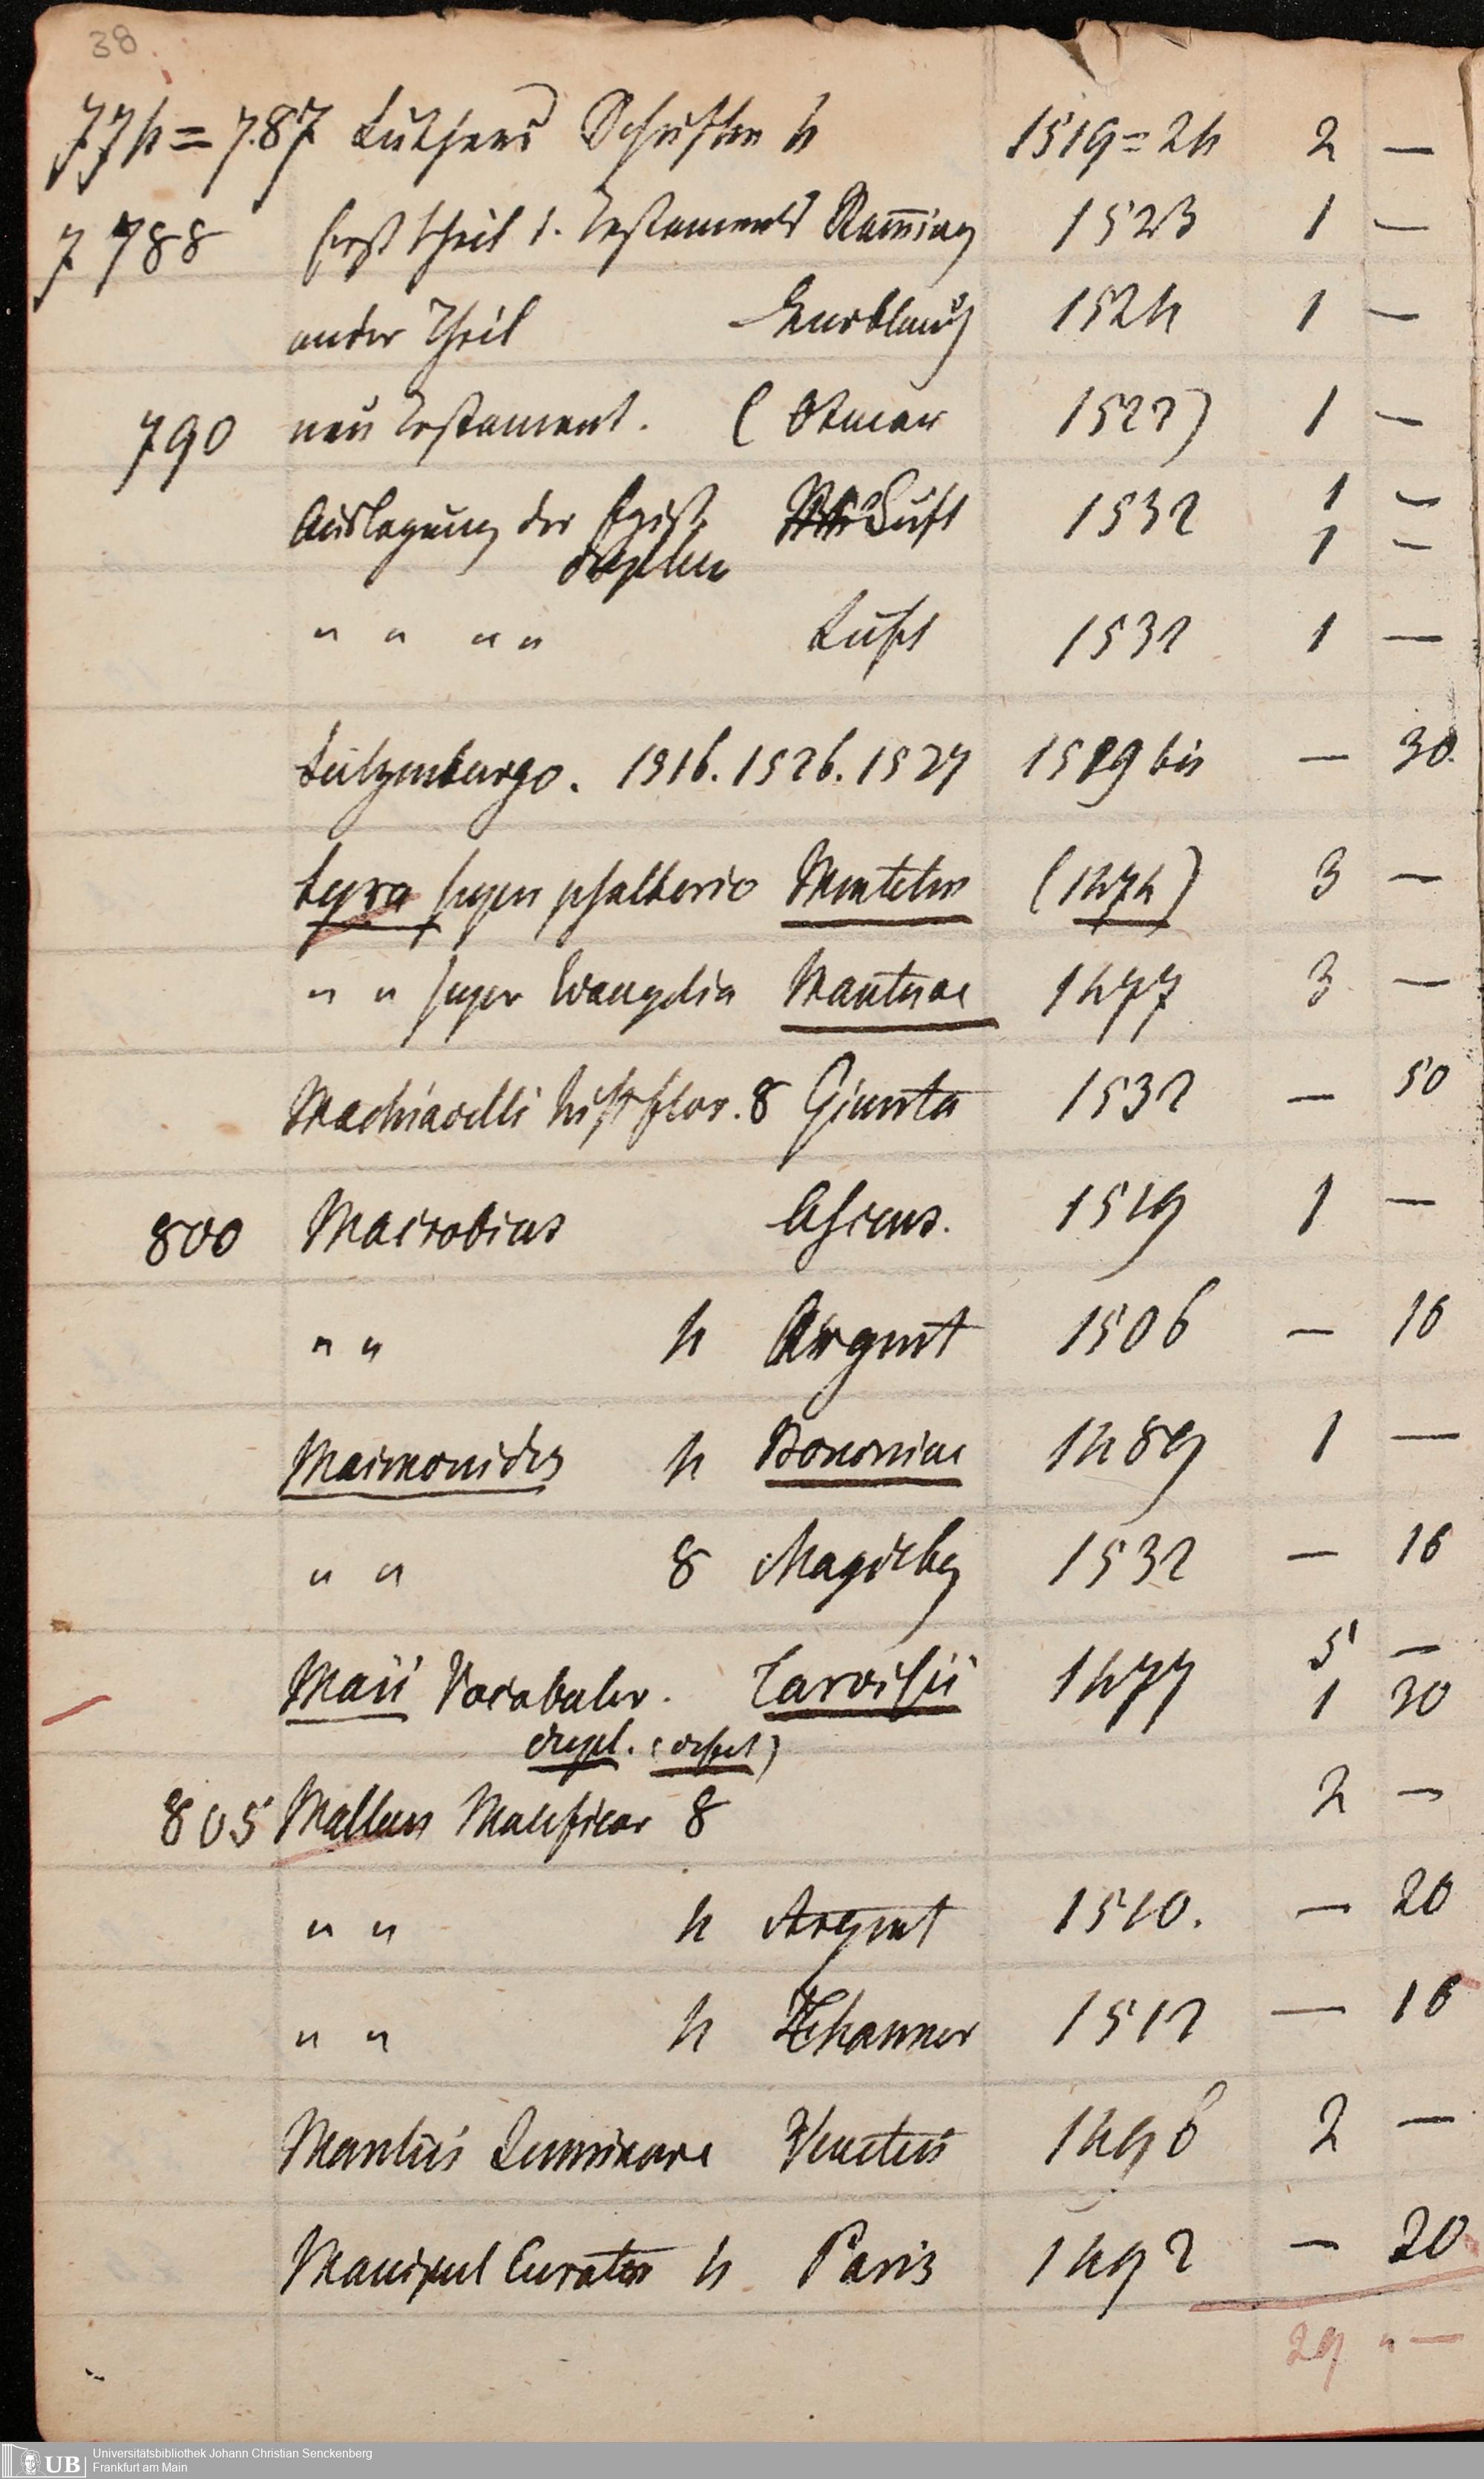 38.
774=787 Luthers Schriften 4 1519=24 2 —
7 788 Erst theil 1. Testaments Ramming 1523 1 —
ander Theil Knoblauch 1524 1 —
790 neu Testament. (Otmar 1522) 1 —
Auslegung der Epist. Luft 1532 1 —
duplum 1 —
" " " " Luft 1532 1 —
Lutzenburgo. 1516. 1526. 1527 1529 bis — 30.
Lyra super psalterio Mentelin (1474) 3 —
" " super Evangelia Mantuae 1477 3 —
Machiavelli hist flor. 8 Giunta 1532 — 50
800 Macrobius Ascens. 1519 1 —
" " 4 Argent 1506 — 16
Maimonides 4 Bononiae 1489 1 —
" " 8 Magdebg 1532 — 16
Maii Vocabular. Tarvisii 1477 5 —
dupl. (defect) 1 30
805 Malleus Maleficar 8 2 —
" " 4 Argent 1510. — 20
" " 4 1512 — 16
Manlius Luminare Venetiis 1496 2 —
Manipul Curator 4 Paris 1492 — 20
29 " —
UB Universitätsbibliothek Johann Christian Senckenberg
Frankfurt am Main